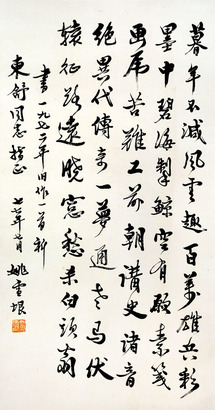 暮年不减风云趣百万雄兵彩
墨中碧海掣鲸空有愿素笺
画虎苦难工前朝讚史诸音
绝异代传奇一梦通老马伏
辕征路远晓窗愁未白头翁
书一九七二年旧作一首祈
东舒同志指正
七八年 月 姚雪垠